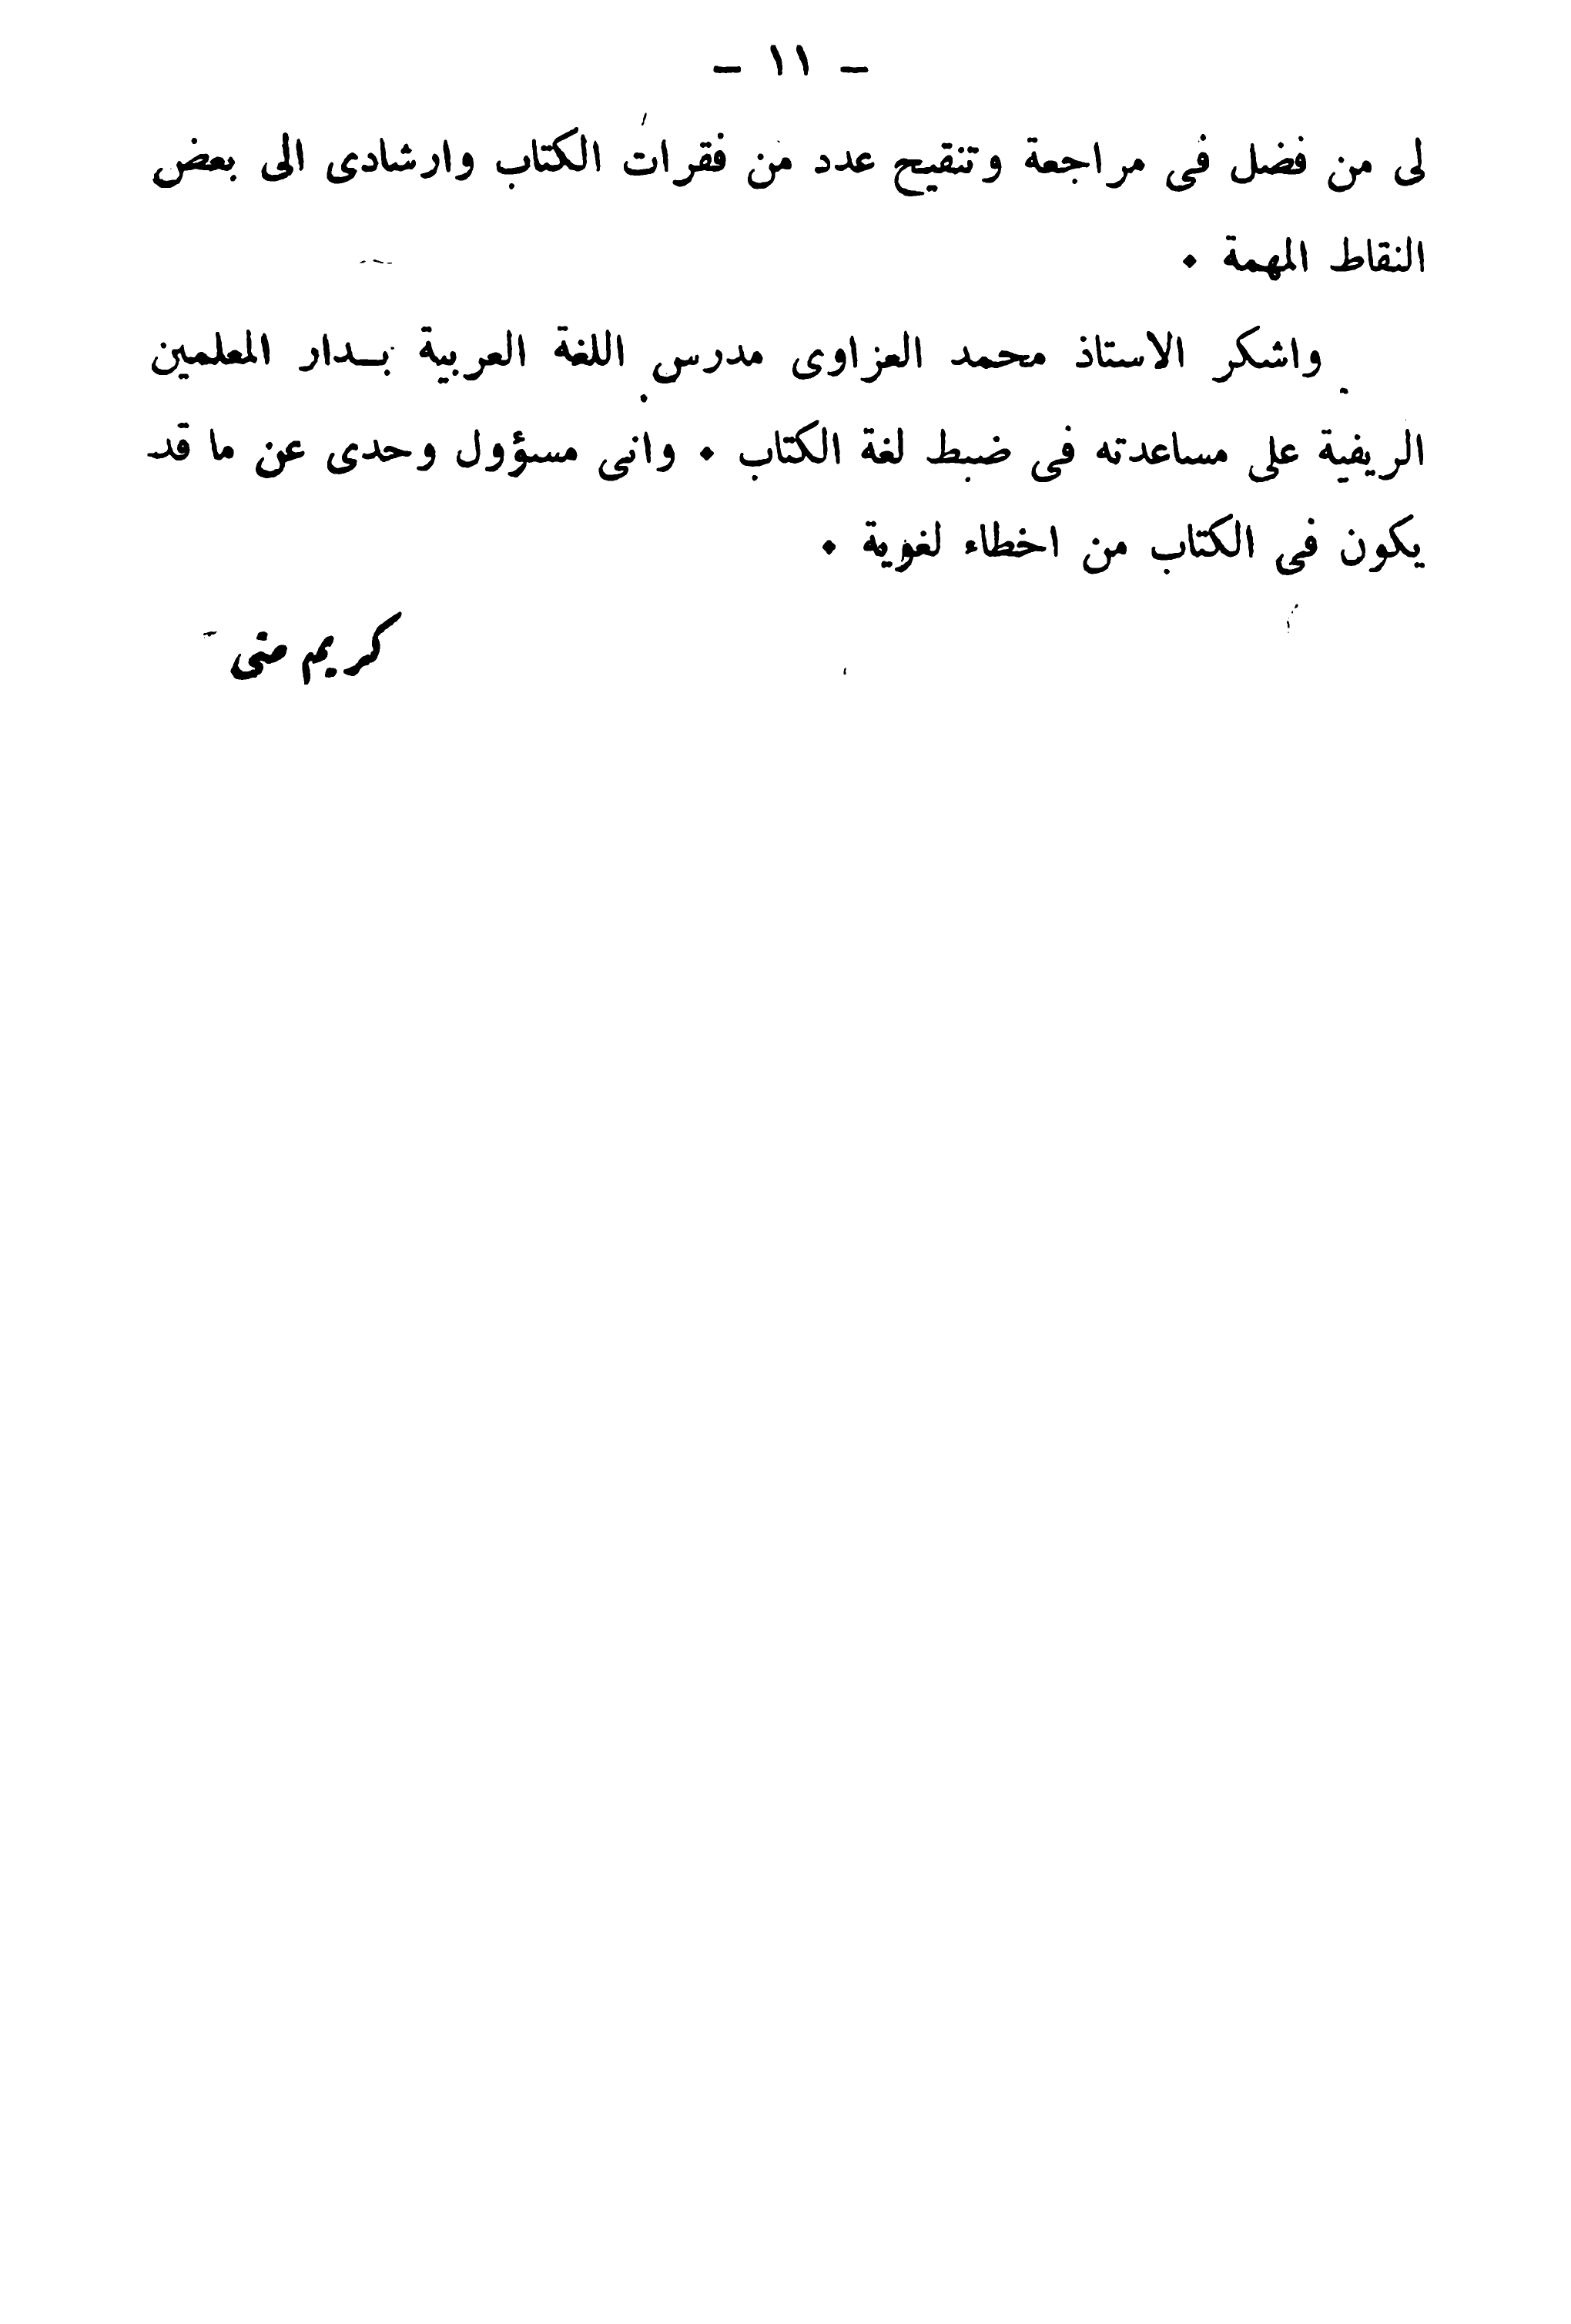 – ١١ –
لى من فضل فى مراجعة وتنقيح عدد من فقرات الكتاب وارشادى الى بعض
النقاط المهمة ٠
واشكر الاستاذ محمد العزاوى مدرس اللغة العربية بـدار المعلمين
الريفية على مساعدته فى ضبط لغة الكتاب ٠ وانى مسؤول وحدى عن ما قد
يكون فى الكتاب من اخطاء لغوية ٠
كريم متى